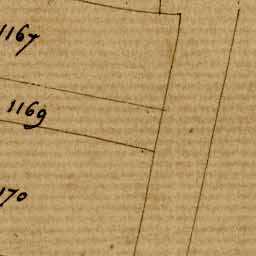 1167
1169
170